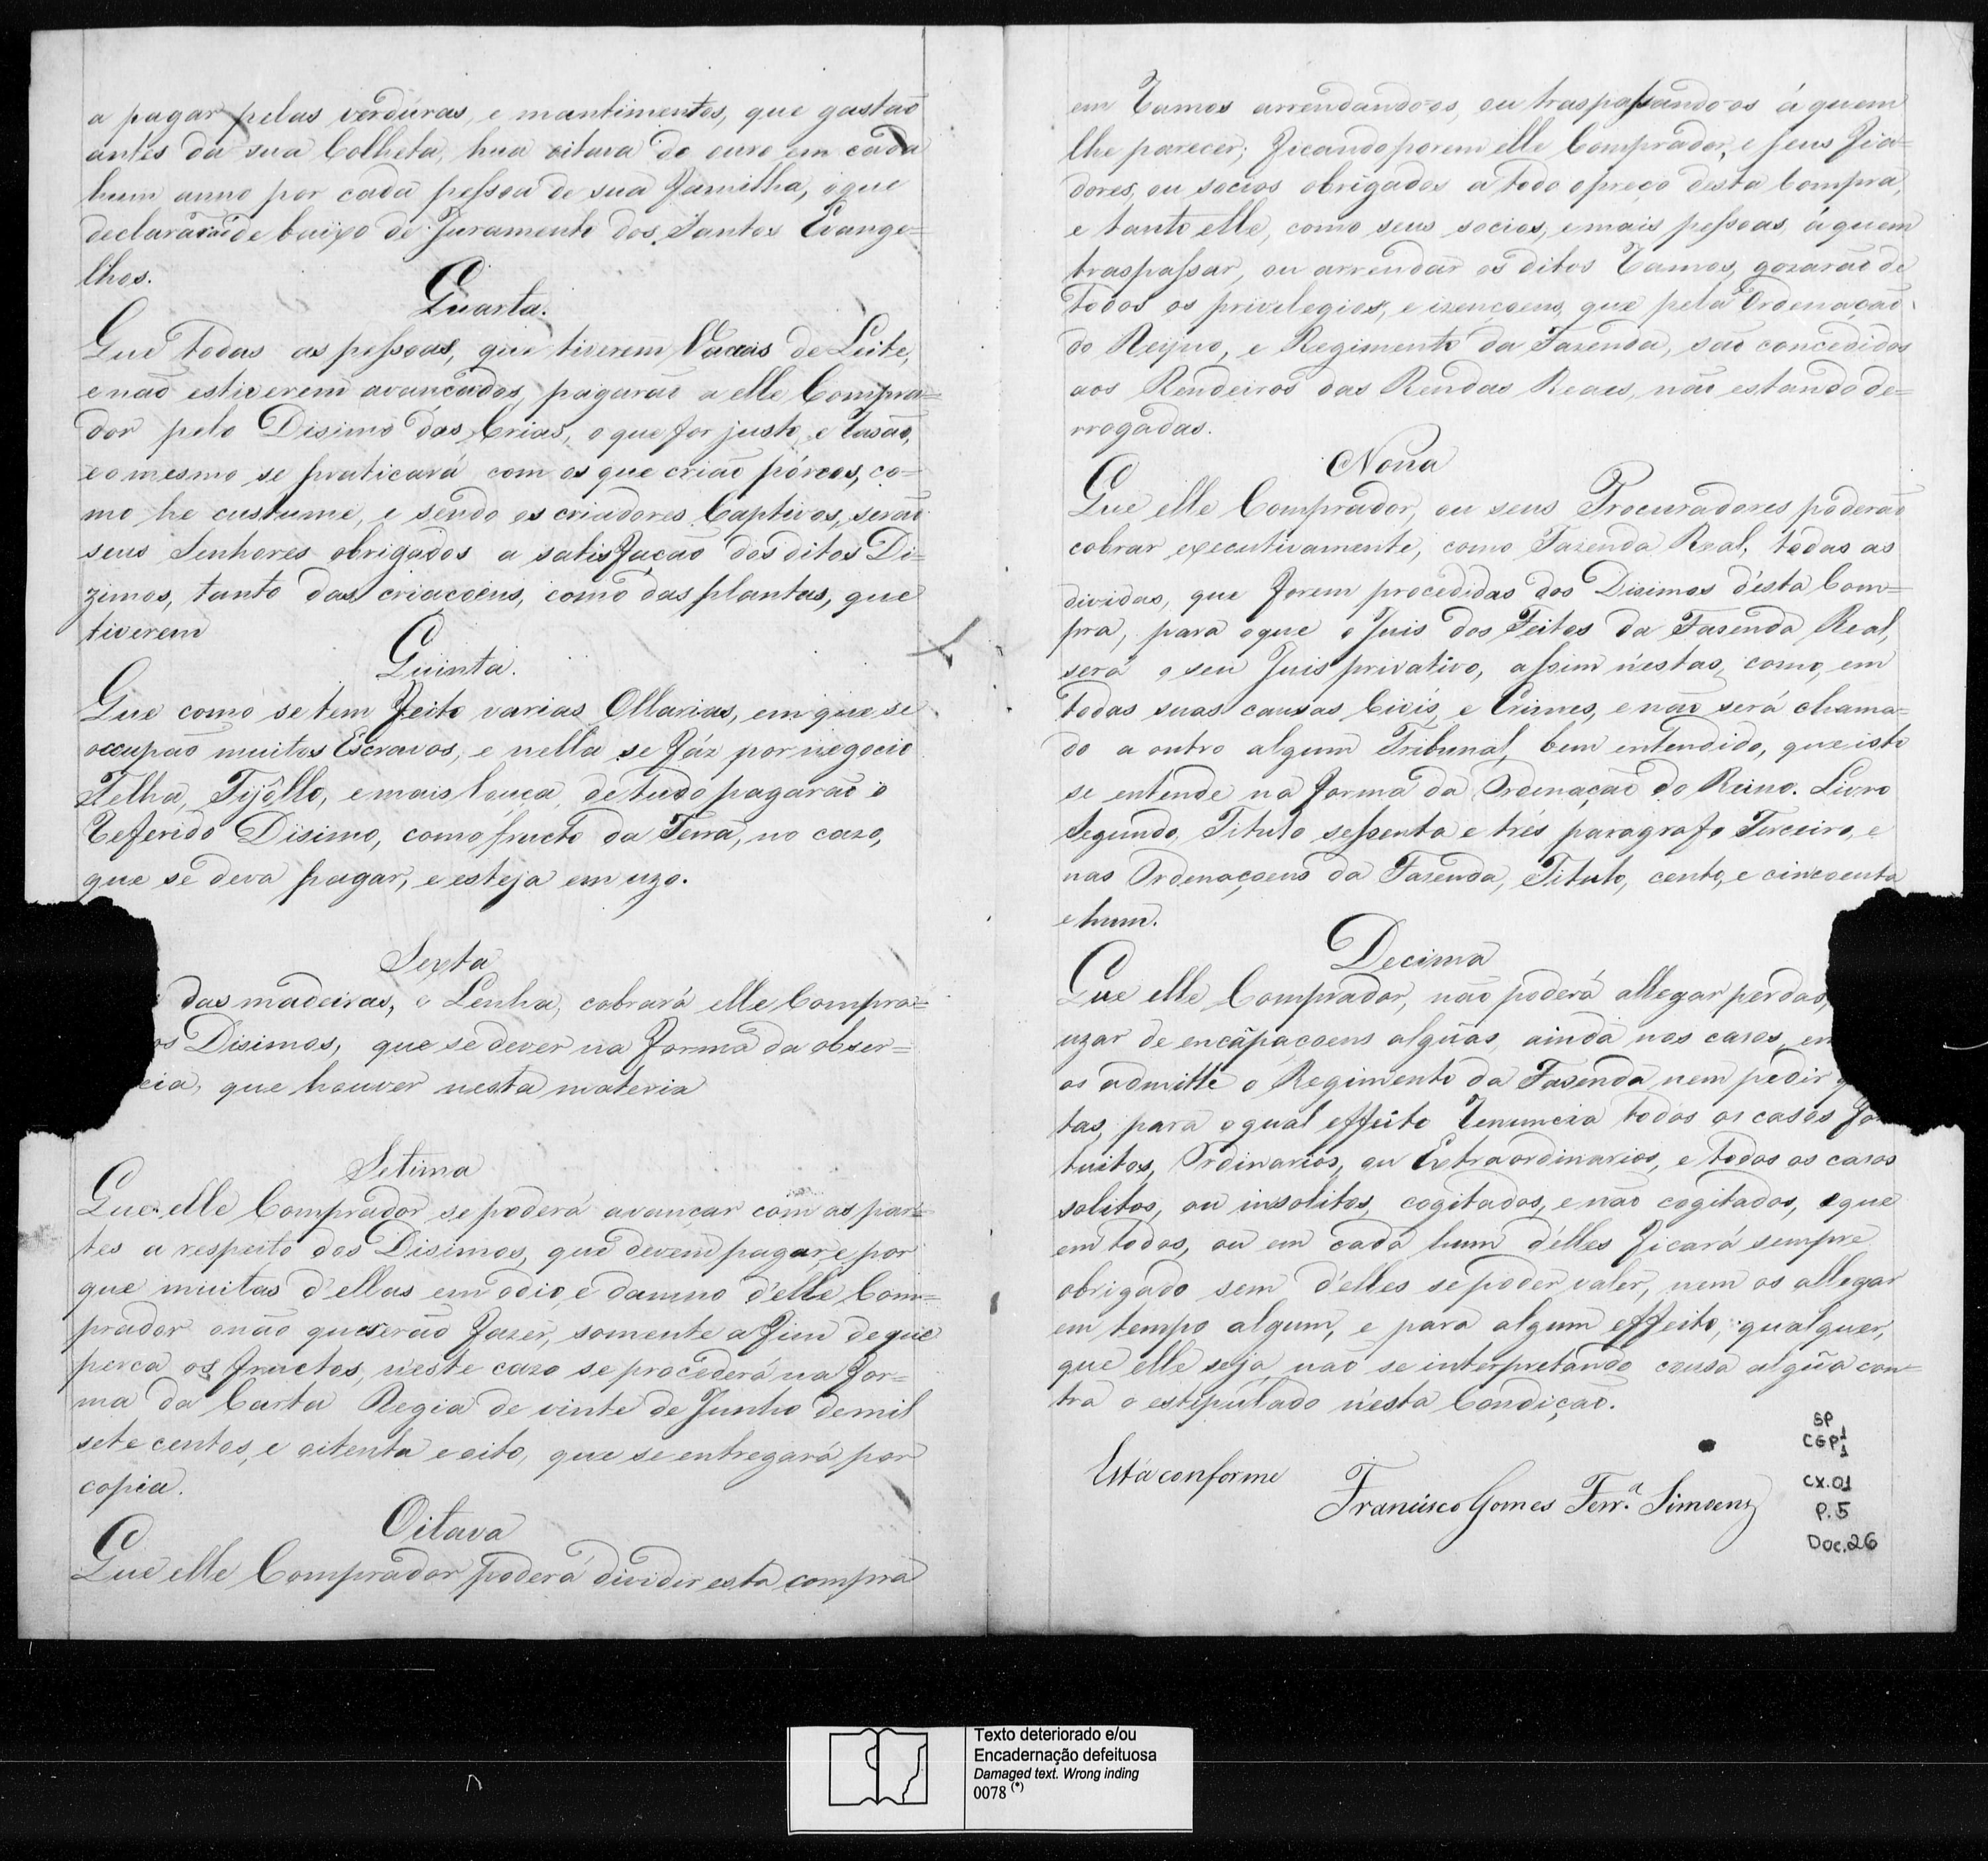 a pagar pelas verdúras, e mantimentos, que gastaõ
antes da sua Colheta, hua oitava de ouro em cada
hum anno por cada pessoa de sua Familha, o que
declararaõ de baixo de Juramento dos Santos Evange=
lhos.
Quarta.
Que todas as pessoas, que tiverem Vacas de Leite,
e naõ estiverem avançados, pagaraõ a elle Compra=
dor pelo Disimo das Crias, o que for justo, e Rasaõ,
e o mesmo se praticará com os que criaõ pórcos, co=
mo he custume, e sendo os criadores Captivos, seraõ
seus Senhores obrigados a satisfaçaõ dos ditos Di=
zimos, tanto das criaçoens, como das plantas, que
tiverem
Quinta.
Que como se tem feito varias Ollarias, em que se
occupaõ muitos Escravos, e nella se fáz por negocio
Telha, Tijôllo, e mais louça, de tudo pagaraõ o
Referido Disimo, como fructo da Terra, no cazo,
que se deva pagar, e esteja em uzo.
Sexta
das madeiras, e Lenha, cobrará elle Compra=
os Disimos, que se dever na forma da obser=
cia, que houver nesta materia
Setima
Que elle Comprador se poderá avançar com as par=
tes a respeito dos Disimos, que devem pagar, e por
que muitas d'ellas em odio, e damno d'elle Com=
prador o naõ quererão fazer, somente a fim de que
perca os fructos, n'este cazo se procederá na for=
ma da Carta Regia de vinte de Junho de mil
sete centos, e oitenta e oito, que se entregará por
copia.
Oitava
Que elle Comprador poderá dividir esta compra
em Ramos arrendando-os, ou traspassando-os á quem
lhe parecer; ficando porem elle Comprador, e seus fia=
dores, ou socios obrigados a todo o preço desta Compra,
e tanto elle, como seus socios, e mais pessoas, á quem
traspassar, ou arrendar os ditos Ramos, gozaraõ de
todos os privilegios, e izençoens, que pela Ordenaçaõ
do Reyno, e Regimento da Fazenda, saõ concedidos
aos Rendeiros das Rendas Reaes, naõ estando de=
rrogadas.
Nona
Que elle Comprador, ou seus Procuradores poderaõ
cobrar executivamente, como Fazenda Real, todas as
dividas, que forem procedidas dos Disimos d'esta Com=
pra, para o que o Juis dos Feitos da Fasenda Real,
será o seu Juis privativo, assim n'estas, como, em
todas suas causas Civis, e Crimes, e naõ será chama=
do a outro algum Tribunal, bem entendido, que isto
se entende na forma da Ordenaçaõ do Reino. Livro
Segundo, Titulo sessenta e trés paragrafo Terceiro, e
nas Ordenaçoens da Fazenda, Titulo, cento, e cincoenta
e hum.
Decima
Que elle Comprador, não poderá allegar perdas,
uzar de encãpaçoens algũas, ainda nos casos, em
os admitte o Regimento da Fasenda nem pedir
tas, para o qual effeito Renuncia todos os casos for
tuitos, Ordinarios, ou Extraordinarios, e todos os casos
solitos, ou insolitos, cogitados, e não cogitados, e que
em todos, ou em cada hum d'elles ficará sempre
obrigado sem d'elles se poder valer, nem os allegar
em tempo algum, e para algum effeito, qualquer,
que elle seja, naõ se interpretando cousa algũa con=
tra o estipulado n'esta Condiçaõ.
Está conforme
Francisco Gomes Ferr.ª Simoens
SP
CGP1
1
CX.01
P.5
Doc.26
Texto deteriorado e/ou
Encadernação defeituosa
Damaged text. Wrong inding
0078 (*)